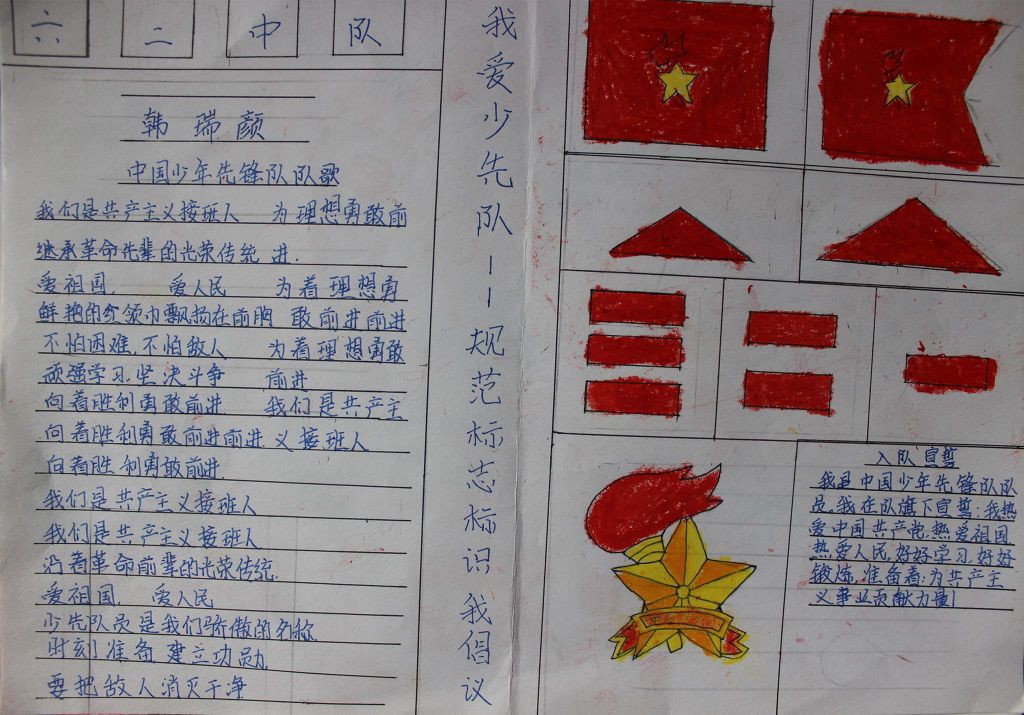 六 二 中 队
韩 瑞 颜
中国少年先锋队队歌
我们是共产主义接班人 为理想勇敢前
继承革命先辈的光荣传统 进.
爱祖国, 爱人民 为着理想勇
鲜艳的红领巾飘扬在前胸 敢前进前进
不怕困难,不怕敌人 为着理想勇敢
顽强学习,坚决斗争 前进
向着胜利勇敢前进 我们是共产主
向着胜利勇敢前进前进 义接班人
向着胜利勇敢前进
我们是共产主义接班人
我们是共产主义接班人
沿着革命前辈的光荣传统
爱祖国, 爱人民
少先队员是我们骄傲的名称
时刻准备 建立功员
要把敌人消灭干净
我爱少先队--规范标志标识 我倡议
入队宣誓
我是中国少年先锋队队
员,我在队旗下宣誓:我热
爱中国共产党,热爱祖国
热爱人民,好好学习,好好
锻炼,准备着:为共产主
义事业贡献力量!